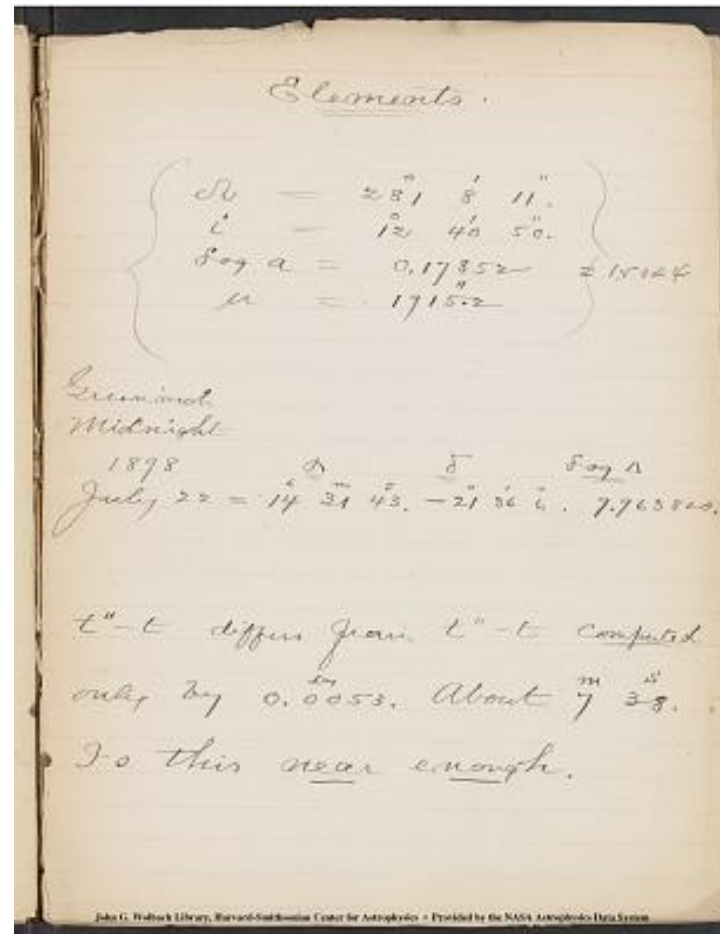 Elements.
☊ = 281° 8' 11".
i = 12° 40' 50".
Log a = 0.17852 = 1.5084
μ = 1915".2
Greenwich
Midnight
1898 α δ Log Δ
July 22 = 14h 31m 43s. −21° 36' . 9.963800.
t"−t differs from t"−t computed
only by 0.0053. About 7m 38s.
Is this near enough.
John G. Wolbach Library, Harvard-Smithsonian Center for Astrophysics • Provided by the NASA Astrophysics Data System